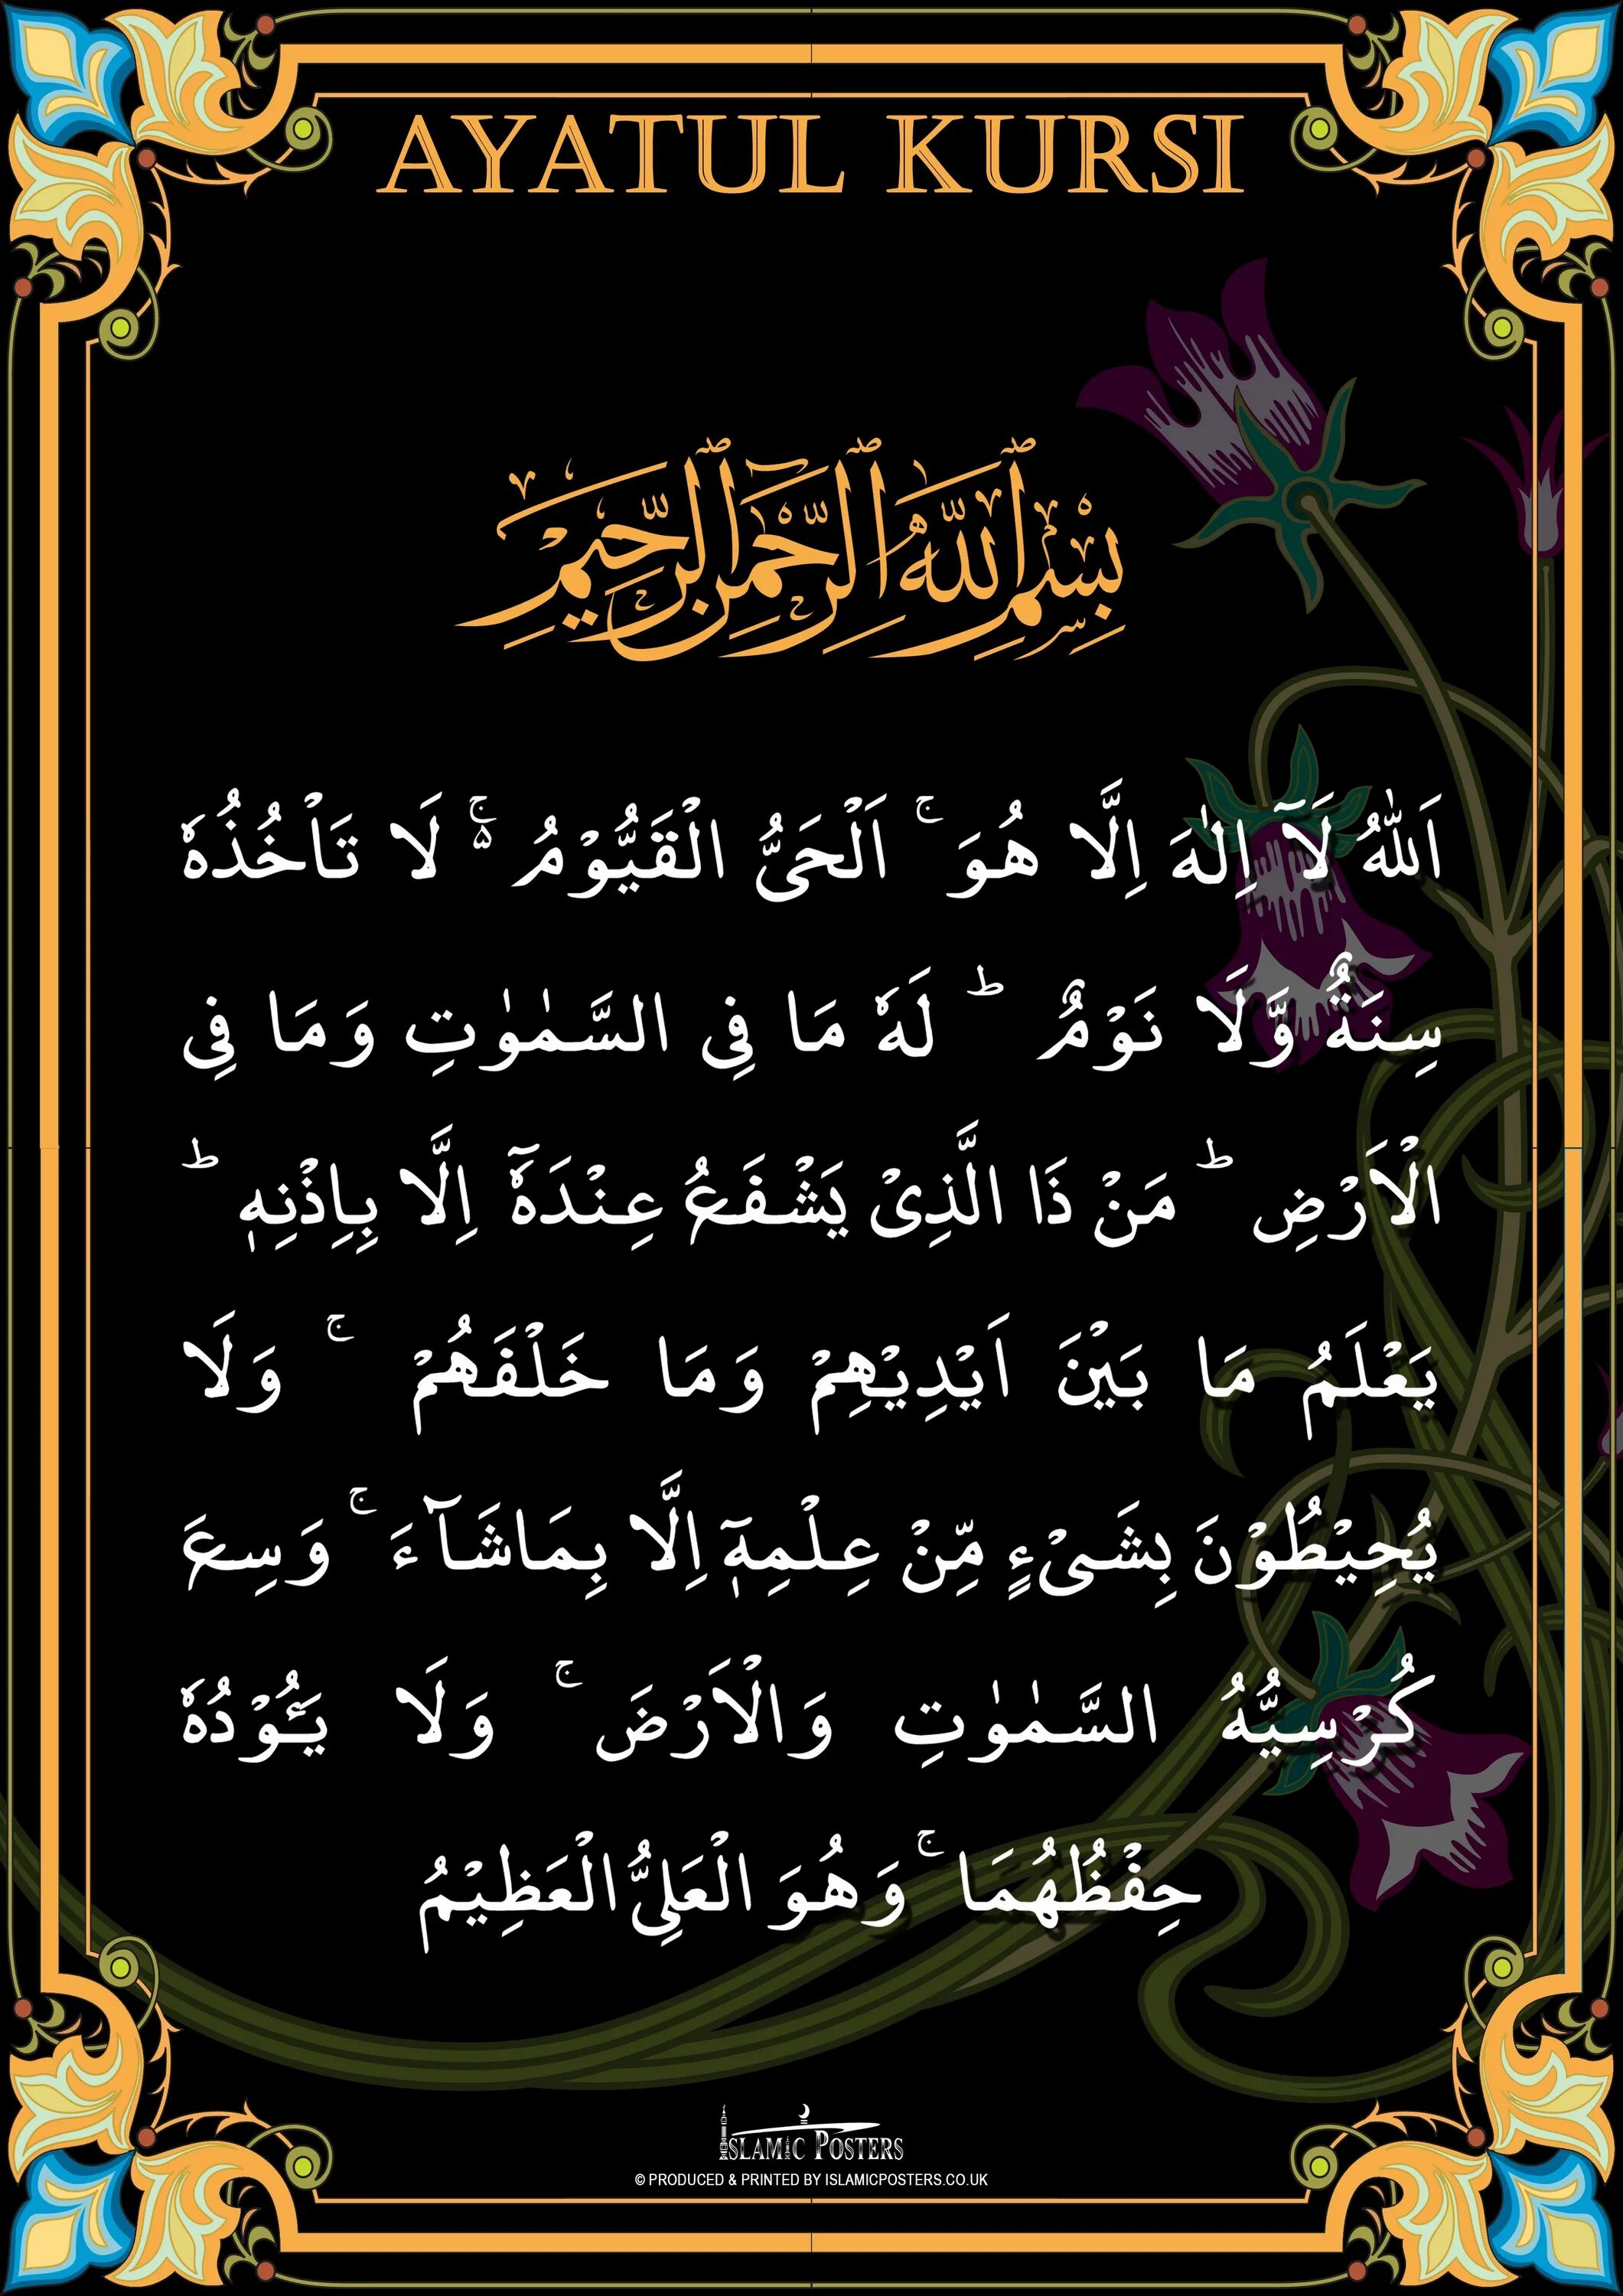 AYATUL KURSI
بِسْمِ ٱللَّهِ ٱلرَّحْمَٰنِ ٱلرَّحِيمِ
اَللّٰهُ لَآ اِلٰهَ اِلَّا هُوَ ۚ اَلْحَىُّ الْقَيُّوْمُ ۬ۚ لَا تَاْخُذُهٗ
سِنَةٌ وَّلَا نَوْمٌ ؕ لَهٗ مَا فِى السَّمٰوٰتِ وَمَا فِى
الْاَرْضِ ؕ مَنْ ذَا الَّذِىْ يَشْفَعُ عِنْدَهٗٓ اِلَّا بِاِذْنِهٖ ؕ
يَعْلَمُ مَا بَيْنَ اَيْدِيْهِمْ وَمَا خَلْفَهُمْ ۚ وَلَا
يُحِيْطُوْنَ بِشَىْءٍ مِّنْ عِلْمِهٖٓ اِلَّا بِمَاشَآءَ ۚ وَسِعَ
كُرْسِيُّهُ السَّمٰوٰتِ وَالْاَرْضَ ۚ وَلَا يَـُٔوْدُهٗ
حِفْظُهُمَا ۚ وَهُوَ الْعَلِىُّ الْعَظِيْمُ
ISLAMIC POSTERS
© PRODUCED & PRINTED BY ISLAMICPOSTERS.CO.UK